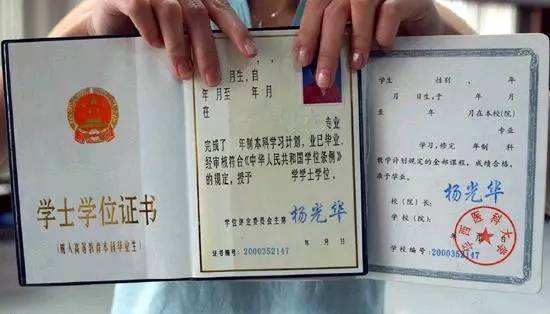 学士学位证书
(成人高等教育本科毕业生)
月生,自
年 月至 年 月
在
专业
完成了 年制本科学习计划,业已毕业,
经审核符合《中华人民共和国学位条例》
的规定,授予 学学士学位。
学位评定委员会主席 杨光华
年 月 日
证书编号:2000352147
学生 性别 , 年
月 日生,于 年
月在本校(院)
专业
学习,修完 年制 科
教学计划规定的全部课程,成绩合格,
准予毕业。
校(院)长:杨光华
学校(院):
华西医科大学
学校编号:2000352147